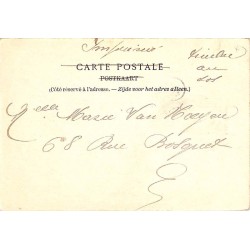 Imprimé
Timbre
au
dos
CARTE POSTALE
POSTKAART
(Côté réservé à l'adresse. — Zijde voor het adres alleen.)
Melle Marie Van
68 Rue Bosquet